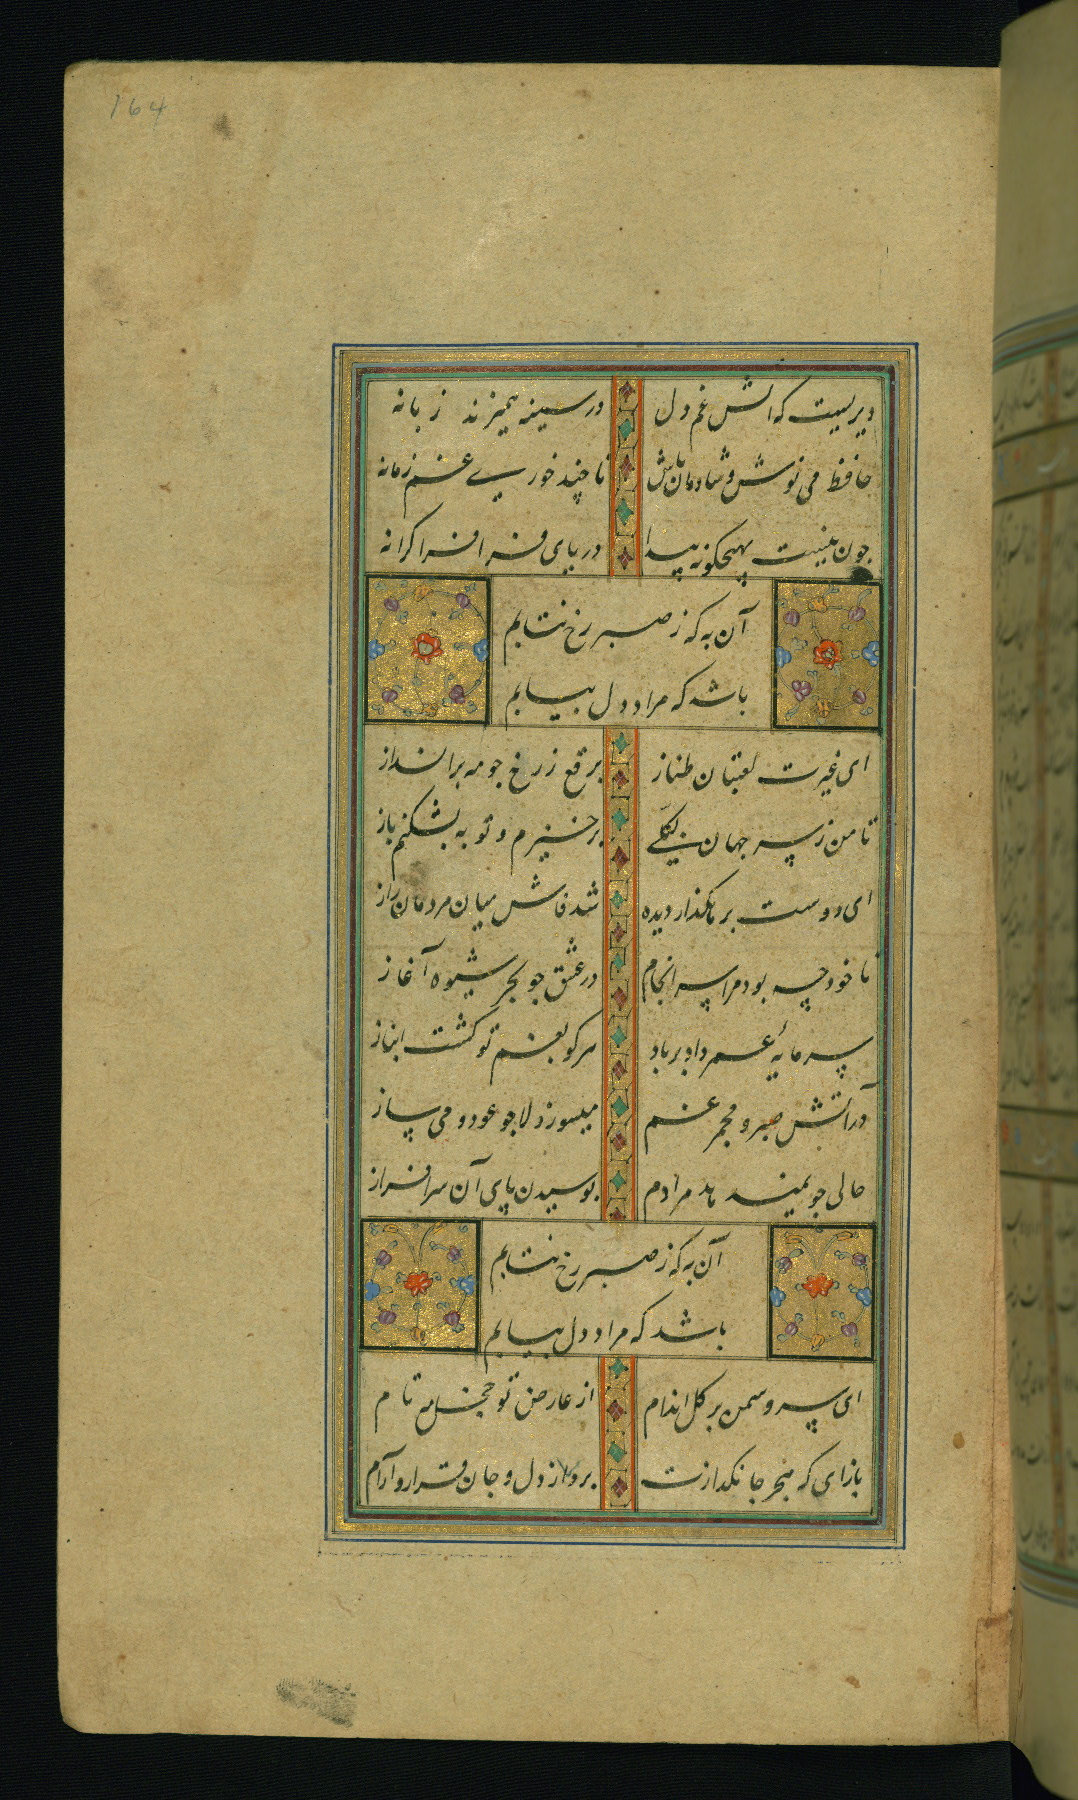 164
دیریست که آتش غم دل در سینه همیزند زبانه
حافظ می نوش و شادمان باش تا چند خوری غم زمانه
چون نیست بهیچگونه پیدا دریای فراق را کرانه
آن به که ز صبر رخ نتابم
باشد که مراد دل بیابم
ای غیرت لعبتان طناز برقع ز رخ چو مه برانداز
تا من ز سر جهان بکلی برخیزم و توبه بشکنم باز
ای دوست بر مانکذار دیده شد فاش میان مردمان راز
تا خود چه بود مرا سرانجام در عشق چو شیوه آغاز
سرمایهٔ عمر داد بر باد هرکو بغم تو کشت انباز
در آتش صبر و مجمر غم میسوز دلا چو عود و می ساز
حالی چو نمیدهد مرادم بوسیدن پای آن سرافراز
آن به که ز صبر رخ نتابم
باشد که مراد دل بیابم
ای سرو سمن بر کل اندام از عارض تو خجل مه تام
بازای که هجر جانکدازت برد از دل و جان قرار و آرام